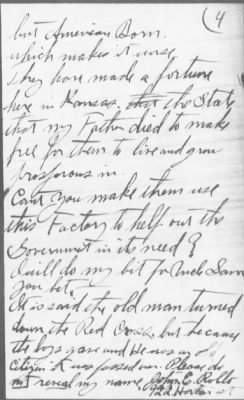 (4
but American Born.
which makes it worse
They have made a fortune
here in Kansas. that the State
that my Father died to make
free for them to live and grow
prosporous in.
Cant you make them use
this Factory to help out the
Government in its need?
I will do my bit for Uncle Sam
you bet.
It is said the old man turned
down the Red Cross but because
the boys gave and He was an old
citizen it was passed over. Please do
not reveal my name